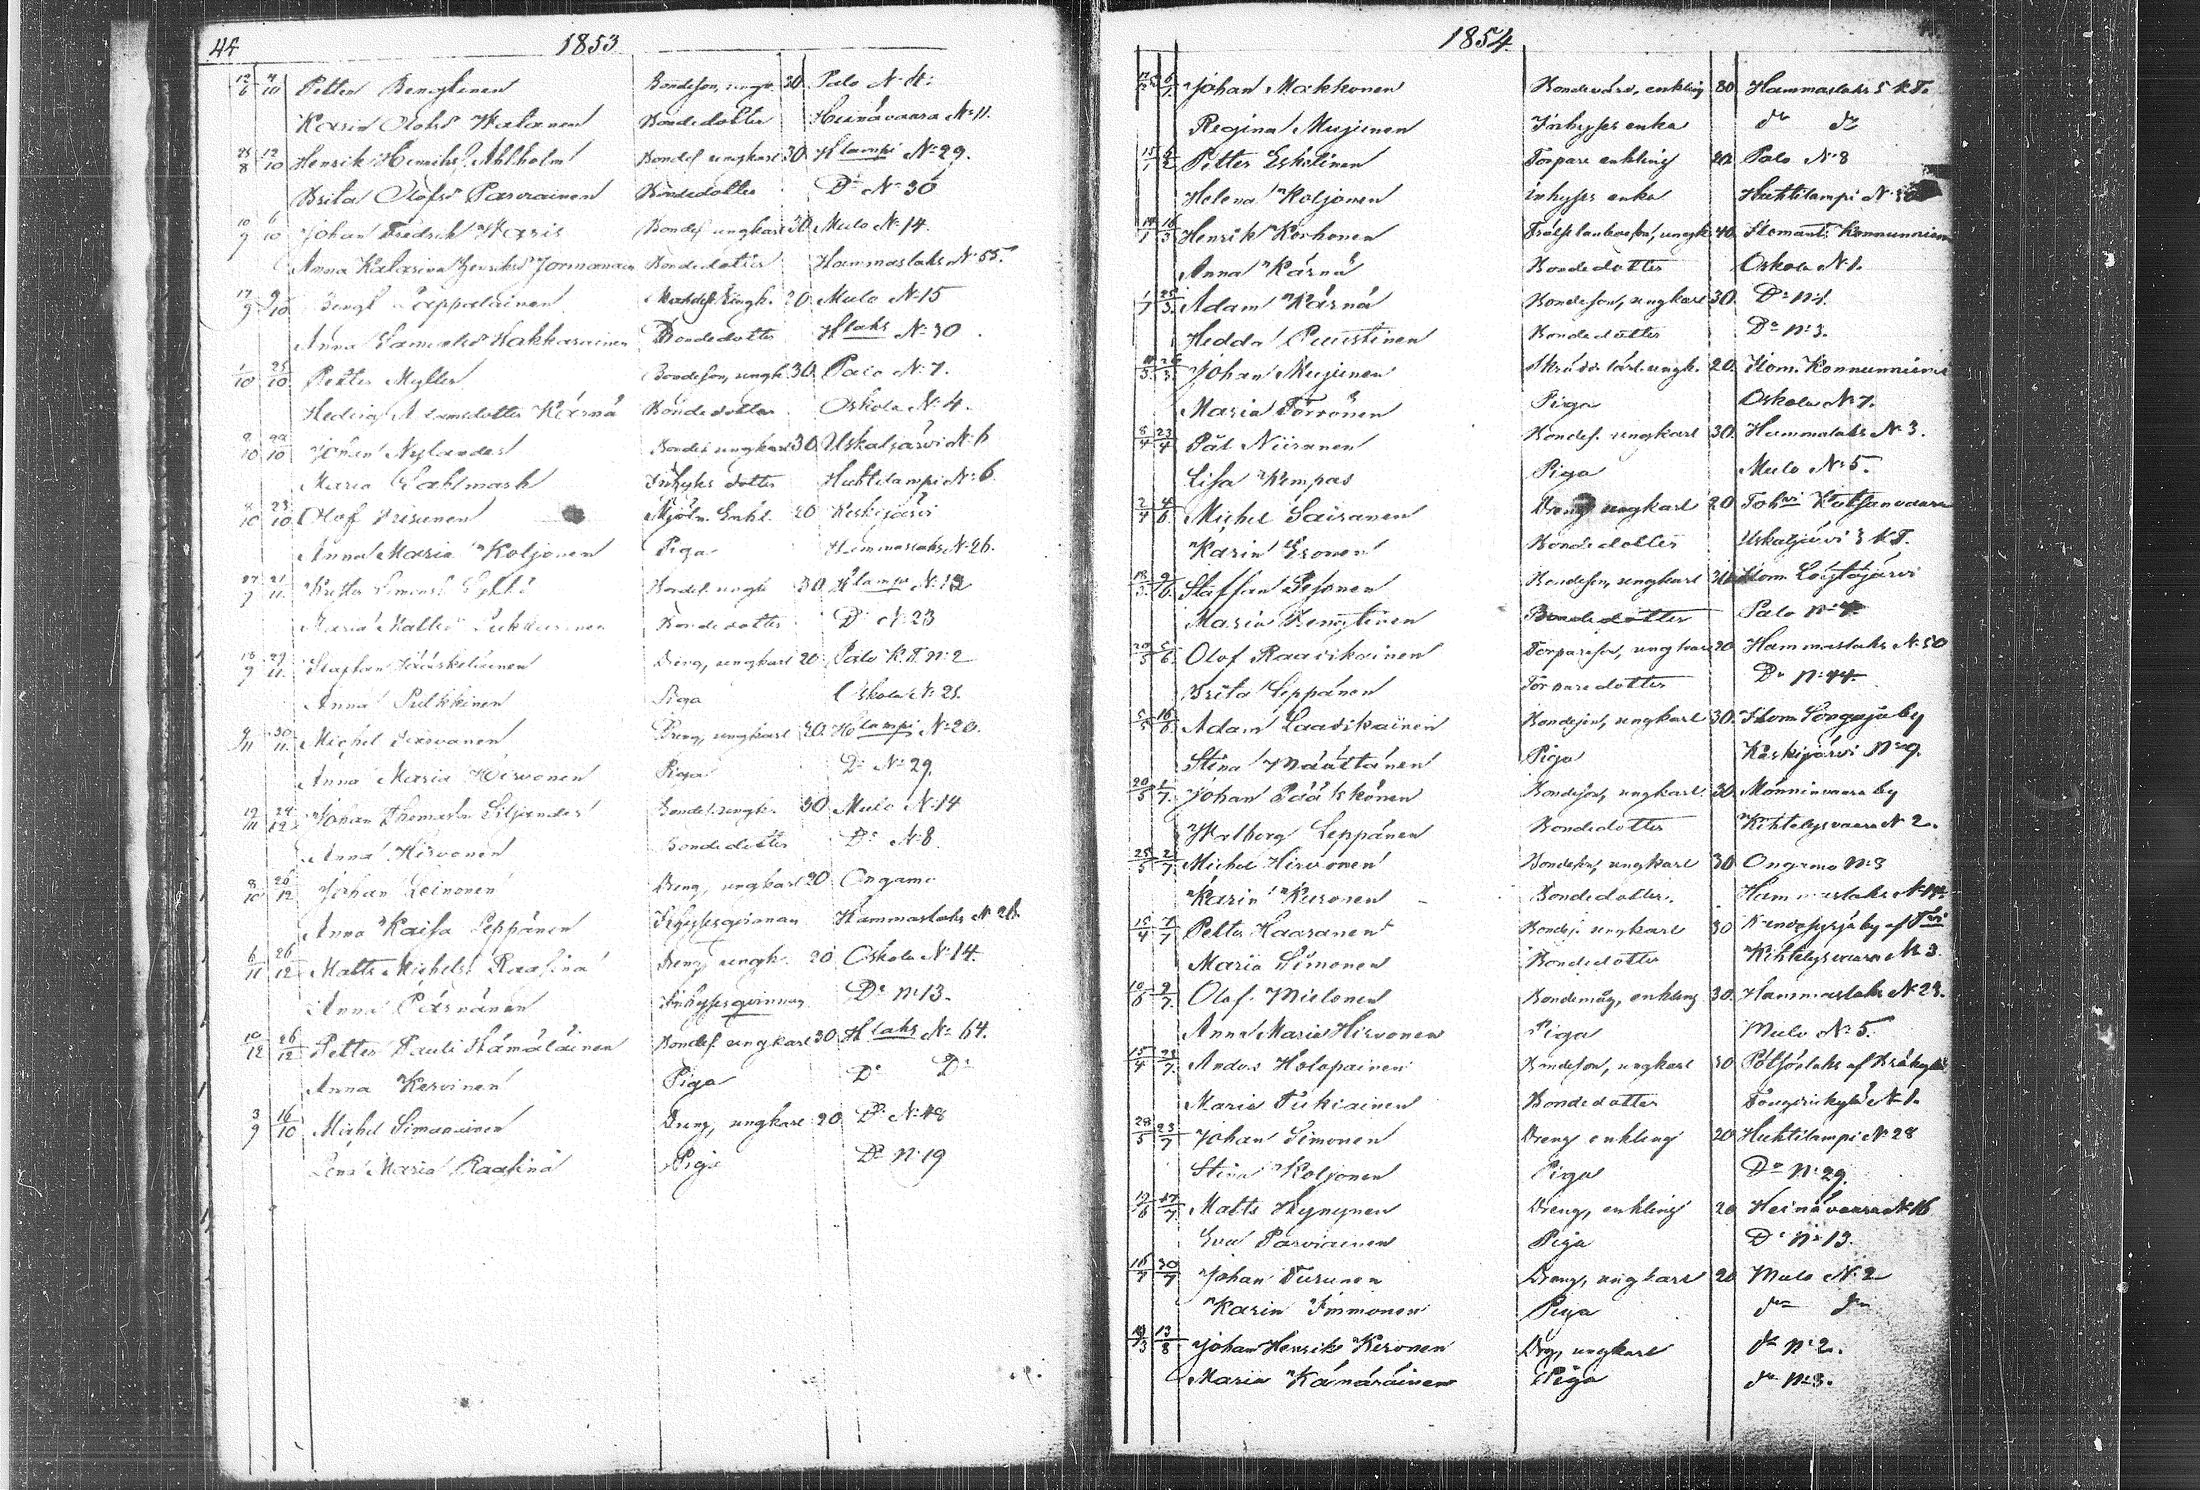 44 1853
12/6 4/10 Petter Bengtinen Bondeson, ungk. 30 Palo N. 4.
Karin Olofsd Halonen Bondedotter Heinävaara N. 11.
28/8 12/10 Henrik Henrikss. Ahlholm Bondes. ungkarl 30 H lampi No 29.
Brita Olofsd Parviainen Bondedotter Do No 30
10/9 6/10 Johan Fredrik Waris Bondes. ungkarl 30 Mulo N. 14.
Anna Katarina Henriksd Jormanain Bondedotter Hammaslaks N. 55.
17/9 9/10 Bengt Lappalainen ungk. 20 Mulo N. 15
Anna Samuelsd Kakkarainen Bondedotter H laks No 30.
1/10 25/10 Petter Myller Bondeson, ungk. 30. Palo N. 7.
Hedvig Adamsdotter Kärnä Bondedotter Oskola N. 4.
9/10 29/10 Johan Nylander Bondes. ungkarl 30 Uskaljärvi N. 6
Maria Lahlmark Inhyses dotter Huhtilampi N. 6.
8/10 23/10 Olof Irisunen Mjöln. Enkl. 20 Keskijärvi
Anna Maria Koljonen Piga Hammaslaks N. 26.
27/9 21/11 Bondes. ungk. 30 H lampi N. 12
Maria Mattsd Bondedotter Do N. 23
18/9 29/11 Staffan Jääskeläinen Dreng, ungkarl 20 Palo K.T. No 2
Anna Pulkkinen Piga Oskola N. 21.
9/11 30/11 Michel Dreng, ungkarl 20. H lampi No 20.
Anna Maria Hirvonen Piga Do No 29.
19/11 24/12 Johan Thomasn Siljander Bondes. ungk. 30 Mulo N. 14
Anna Hirvonen Bondedotter Do N. 8.
8/10 26/12 Johan Leinonen Dreng, ungkarl 20 Ongamo
Anna Kaisa Leppänen Inhysesqvinnan Hammaslaks N. 26.
6/11 26/12 Matts Michelss. Raasina Dreng ungk. 20 Oskola N. 14.
Anna Pärnänen Inhysesqvinnan Do No 13.
10/12 26/12 Petter Pauli Hämäläinen Bondes. ungkarl 30 H laks No 64.
Anna Kervinen Piga Do Do
3/9 16/10 Michel Simanainen Dreng, ungkarl 20 Do N. 48
Lena Maria Raasina Piga Do N. 19
1854.
Johan Makkonen Bondevärd, enkling 30. Hammaslaks 5 K.T.
Regina Mujunen Inhyses enka do do
15/1 5/2 Petter Eskelinen Torpare enkling 20 Palo N. 8
Helena Koljonen Inhyses enka Huhtilampi N. 30
14/1 16/3 Henrik Korhonen ungk. 40. Ilomants Konnunniemi
Anna Kärnä Bondedotter Oskola N. 1.
1/7 25/3 Adam Kärnä Bondeson, ungkarl 30. Do N. 1.
Hedda Puustinen Bondedotter Do No 3.
Johan Mujunen Skräddarl. ungk. 20. Ilom. Konnunniemi
Maria Torronen Piga Oskola N. 7.
8/4 23/4 Pål Niiranen Bondes. ungkarl 30. Hammaslaks N. 3.
Lisa Kempas Piga Mulo N. 5.
2/4 4/6 Michel Sairanen Dreng ungkarl 20 Tohvi Kutsunvaara
Karin Eronen Bondedotter Uskaljärvi 3 K.T.
Staffan Pesonen Bondeson, ungkarl Ilom. Löytöjärvi
Maria Bengtinen Bondedotter Palo No 4.
20/5 5/6 Olof Raavikainen Torpareson, ungkarl 20 Hammaslaks N. 50
Brita Leppänen Torparedotter Do N. 44.
5/5 16/6 Adam Laavikainen Bondeson, ungkarl 30. Ilom Sonkaja by
Stina Määttänen Piga Keskijärvi No 9.
20/5 1/7 Johan Pääkkönen Bondeson, ungkarl 30. Mönninvaara by
Walborg Leppänen Bondedotter Kihtelysvaara N. 2.
25/5 2/7 Michel Hirvonen Bondeson, ungkarl 30 Ongamo N. 3
Karin Kuronen Bondedotter. Hammaslaks N. 14
15/4 7/7 Petter Haaranen Bondes ungkarl 30
Maria Simonen Bondedotter Kihtelysvaara No 3.
10/6 9/7 Olof Mielonen Bondemåg, enkling 30. Hammaslaks N. 23.
Anna Maria Hirvonen Piga Mulo No 5.
15/4 23/7 Anders Holopainen Bondeson, ungkarl 30 Potsönlaks af Bråkylä
Maria Tukiainen Bondedotter N. 1.
28/5 23/7 Johan Simonen Dreng enkling 20 Huhtilampi N. 28
Stina Koljonen Piga Do No 29.
17/6 17/7 Matts Hyvynen Dreng, enkling 20 Heinävaara N. 16
Eva Parviainen Piga Do No 13.
16/7 30/7 Johan Turunen Dreng, ungkarl 20 Mulo N. 2
Karin Immonen Piga do do
19/3 13/8 Johan Henrik Keronen Drg, ungkarl do No 2.
Maria Kämäräinen Piga do No 3.